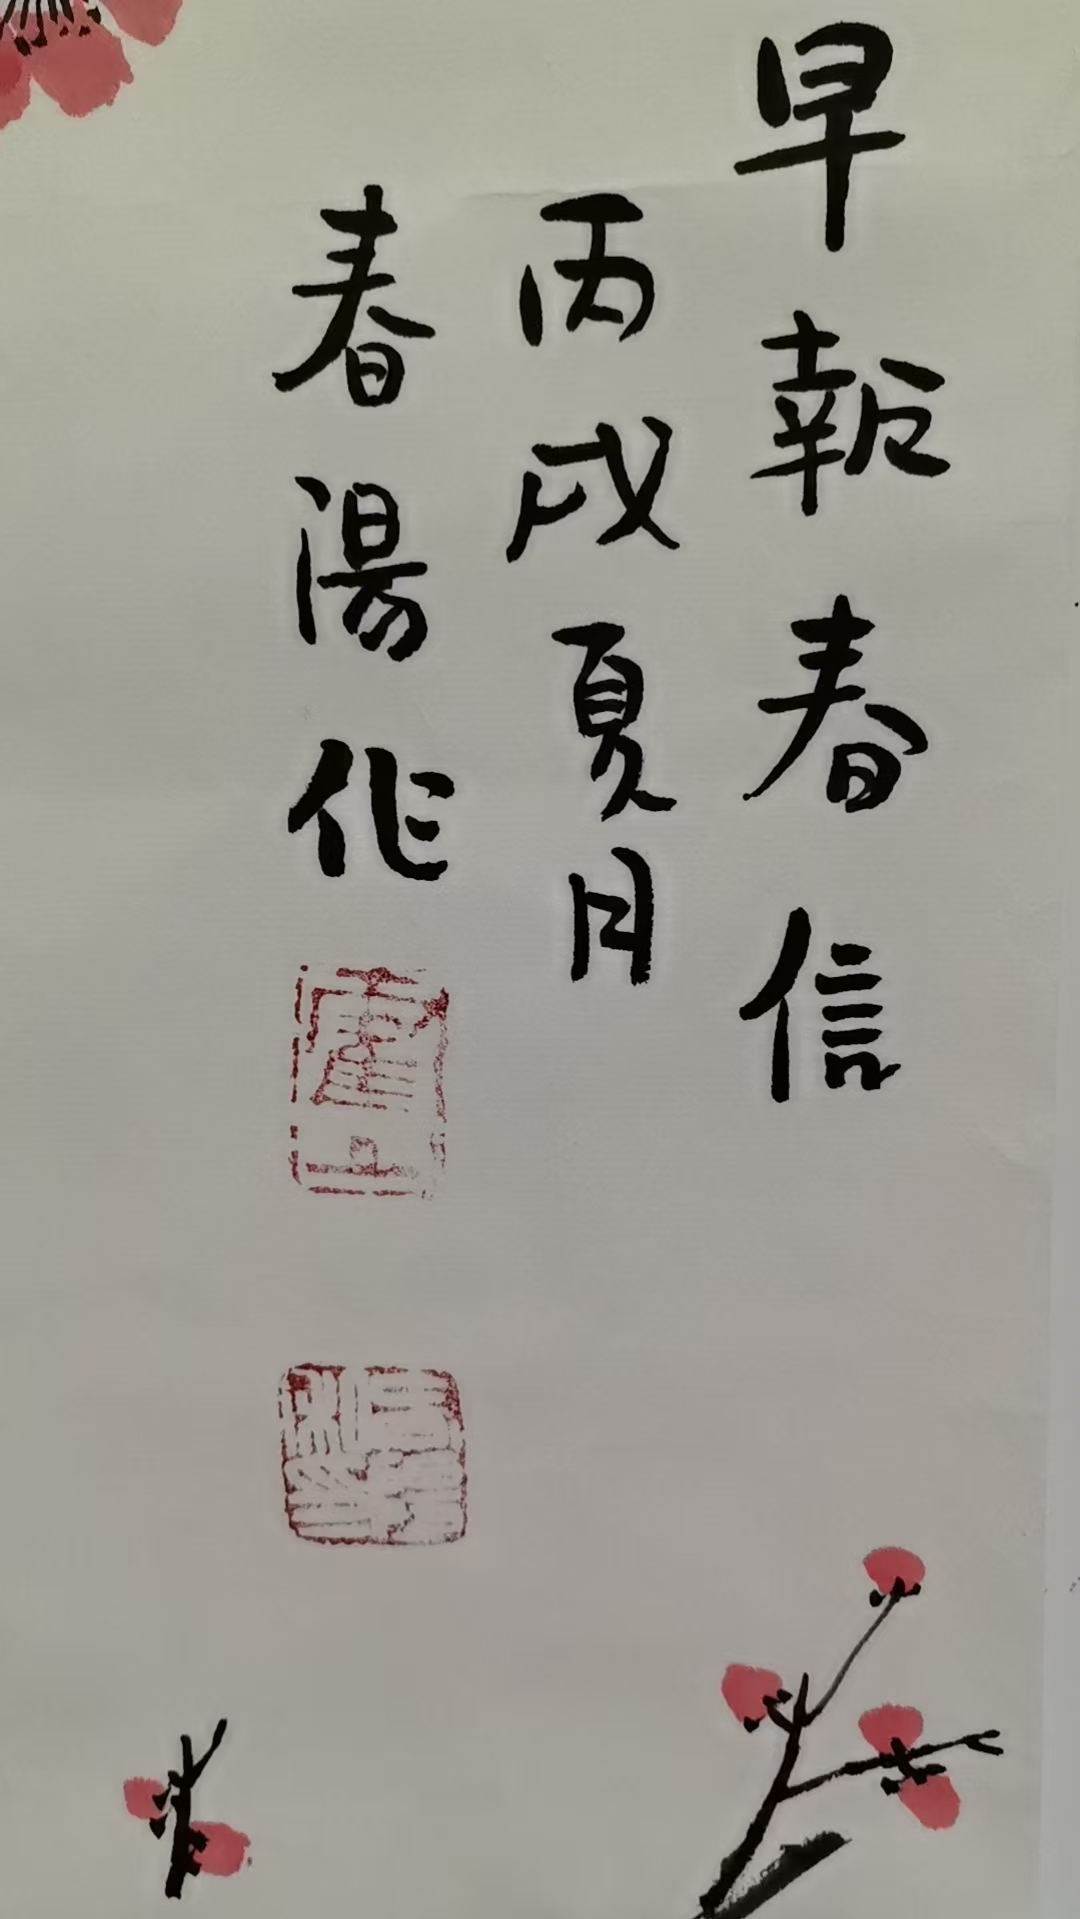 早報春信
丙戌夏月
春陽作